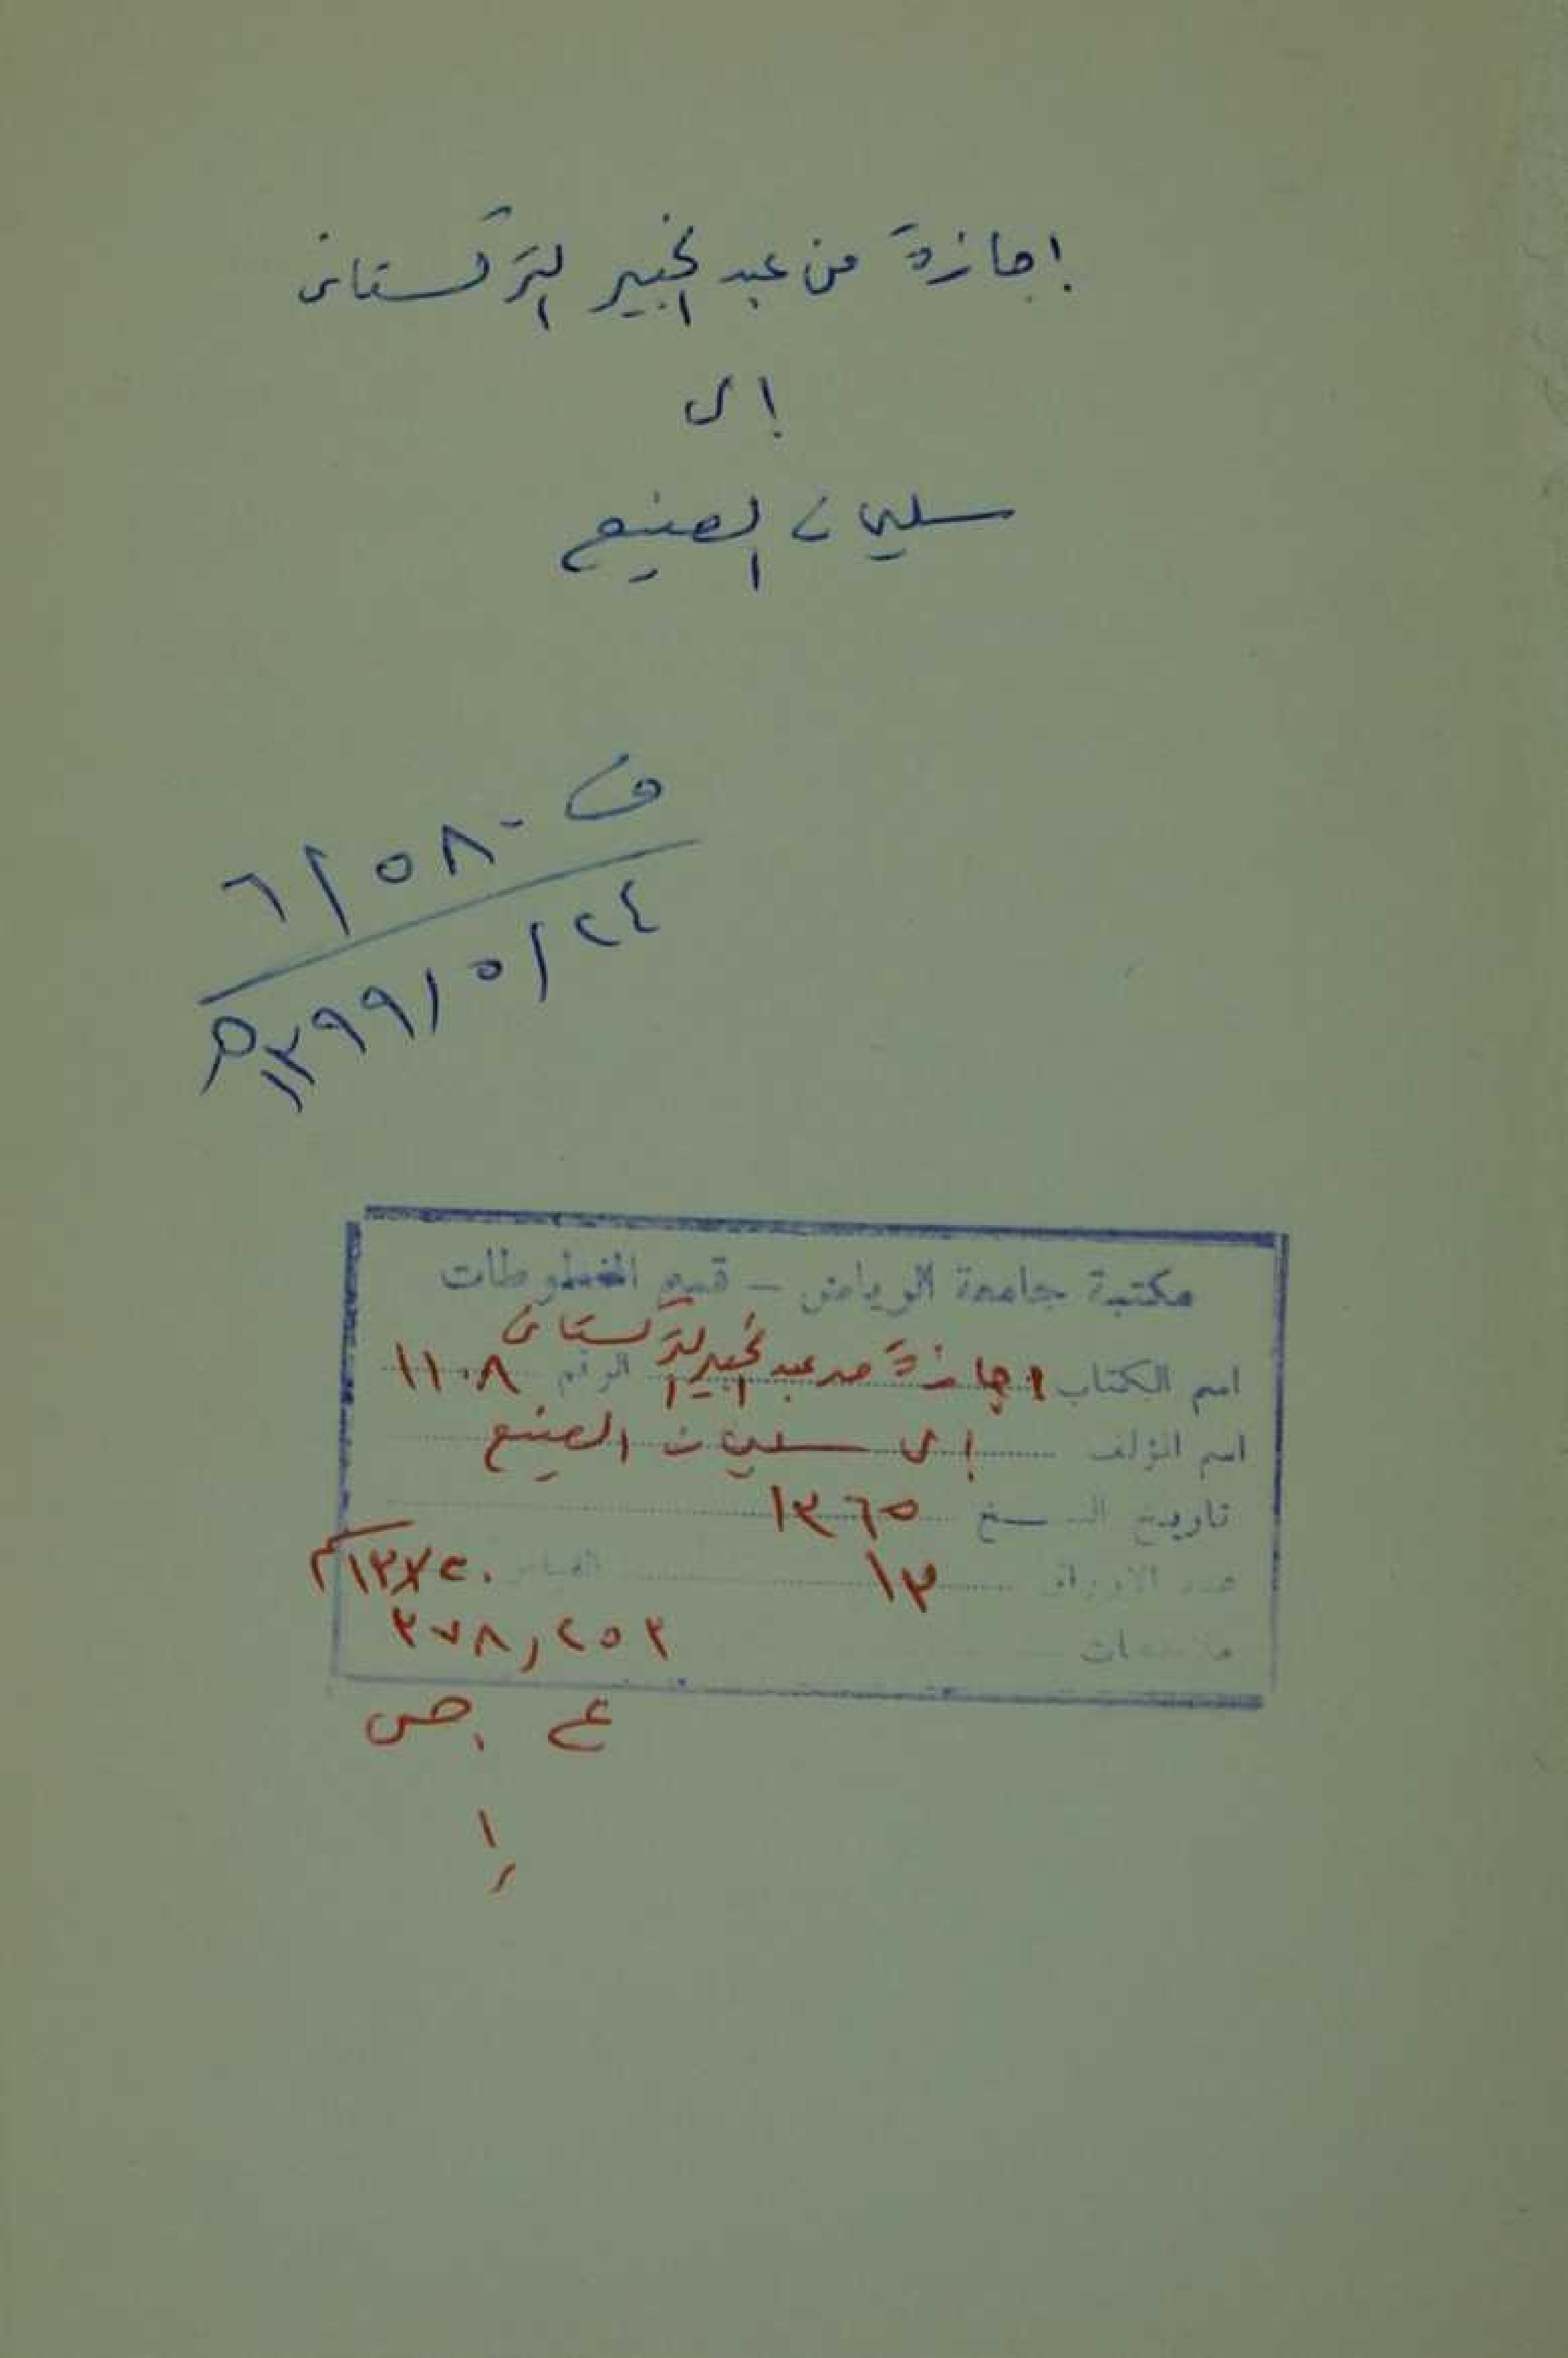 إجازة من عبد الخبير التركستانى
إلى
سليمان الصنيع
ف - ٦/٥٨
٢٤/٥/١٣٩٩هـ
مكتبة جامعة الرياض - قسم المخطوطات
اسم الكتاب اجازة من عبد الخبير التركستانى الرقم ١١٠٨
اسم المؤلف إلى سليمان الصنيع
تاريخ النسخ ١٣٦٥
عدد الاوراق ١٣ القياس ٢٠×١٣سم
ملاحظات ٣٧٨,٢٥٣
ع ٠ ص